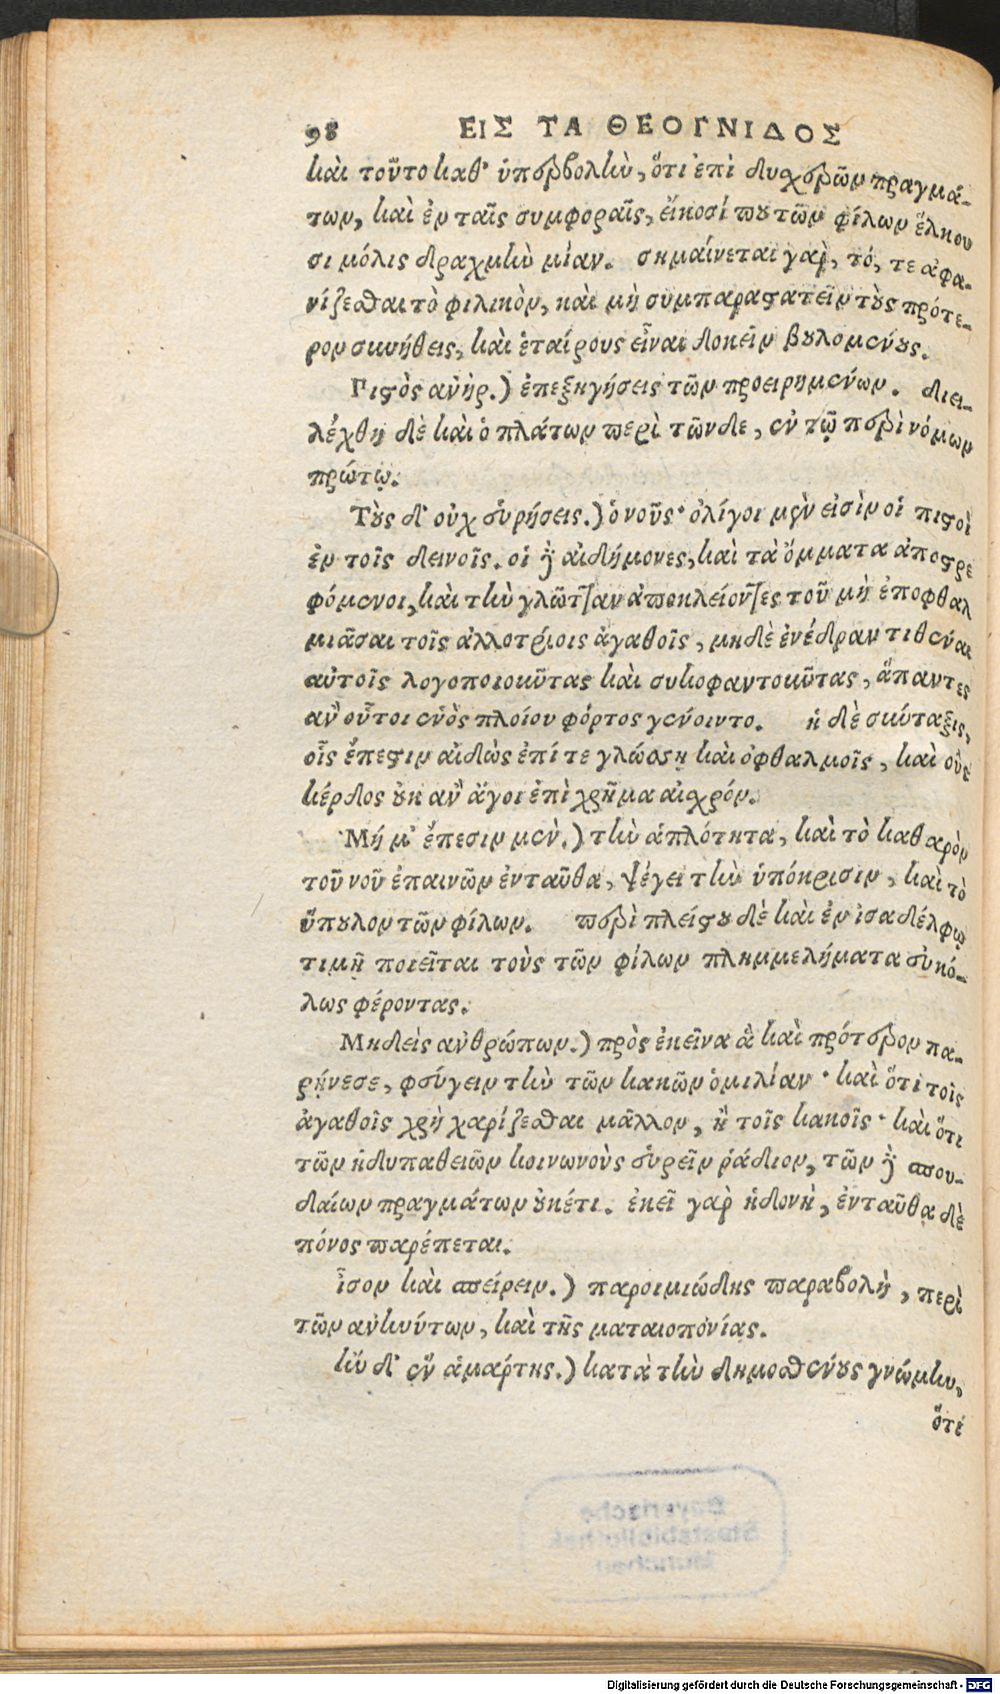 98 ΕΙΣ ΤΑ ΘΕΟΓΝΙΔΟΣ
καὶ τοῦτο καθ' ὑπερβολὴν, ὅτι ἐπὶ δυχερῶν πραγμά-
των, καὶ ἐν ταῖς συμφοραῖς, εἴκοσί που τῶν φίλων ἕλκου
σι μόλις δραχμὴν μίαν. σημαίνεται γὰρ, τό, τε ἀφα-
νίζεσθαι τὸ φιλικὸν, καὶ μὴ συμπαραστατεῖν τοὺς πρότε-
ρον συνήθεις, καὶ ἑταίρους εἶναι δοκεῖν βουλομένους.
Πιστὸς ἀνὴρ.) ἐπεξηγήσεις τῶν προειρημένων. διει-
λέχθη δὲ καὶ ὁ πλάτων περὶ τῶνδε, ἐν τῷ περὶ νόμων
πρώτῳ.
Τοὺς δ' οὐχ εὑρήσεις.) ὁ νοῦς· ὀλίγοι μὲν εἰσὶν οἱ πιστοὶ
ἐν τοῖς δεινοῖς. οἱ δὲ αἰδήμονες, καὶ τὰ ὄμματα ἀποστρε
φόμενοι, καὶ τὴν γλῶτταν ἀποκλείοντες τοῦ μὴ ἐποφθαλ
μιᾶσαι τοῖς ἀλλοτρίοις ἀγαθοῖς, μηδὲ ἐνέδραν τιθέναι
αὐτοῖς λογοποιοῦντας καὶ συκοφαντοῦντας, ἅπαντες
ἂν οὗτοι ἑνὸς πλοίου φόρτος γένοιντο. ἡ δὲ σύνταξις,
οἷς ἔπεστιν αἰδὼς ἐπί τε γλώσσῃ καὶ ὀφθαλμοῖς, καὶ οὓς
κέρδος οὐκ ἂν ἄγοι ἐπὶ χρῆμα αἰσχρόν.
Μή μ' ἔπεσιν μὲν.) τὴν ἁπλότητα, καὶ τὸ καθαρὸν
τοῦ νοῦ ἐπαινῶν ἐνταῦθα, ψέγει τὴν ὑπόκρισιν, καὶ τὸ
ὕπουλον τῶν φίλων. περὶ πλείστου δὲ καὶ ἐν ἰσαδέλφῳ
τιμῇ ποιεῖται τοὺς τῶν φίλων πλημμελήματα εὐκό-
λως φέροντας.
Μηδεὶς ἀνθρώπων.) πρὸς ἐκεῖνα ἃ καὶ πρότερον πα-
ρῄνεσε, φεύγειν τὴν τῶν κακῶν ὁμιλίαν· καὶ ὅτι τοῖς
ἀγαθοῖς χρὴ χαρίζεσθαι μᾶλλον, ἢ τοῖς κακοῖς· καὶ ὅτι
τῶν ἡδυπαθειῶν κοινωνοὺς εὑρεῖν ῥάδιον, τῶν δὲ σπου-
δαίων πραγμάτων οὐκέτι. ἐκεῖ γὰρ ἡδονὴ, ἐνταῦθα δὲ
πόνος παρέπεται.
ἶσον καὶ σπείρειν.) παροιμιώδης παραβολὴ, περὶ
τῶν ἀνηνύτων, καὶ τῆς ματαιοπονίας.
ἢν δ' ἓν ἁμάρτης.) κατὰ τὴν δημοσθένους γνώμην,
ὅτι
Bayerische
Staatsbibliothek
München
Digitalisierung gefördert durch die Deutsche Forschungsgemeinschaft - DFG